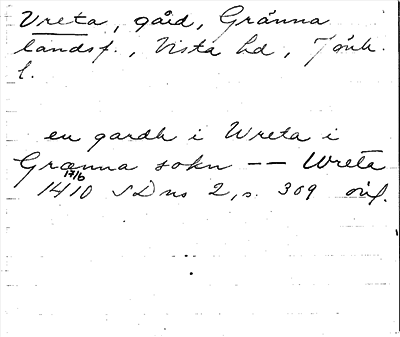 Vreta, gård, Gränna
landsf., Vista hd, Jönk.
l.
en gardh i Wreta i
Grænna sokn -- Wreta
17/6
1410 SDns 2, s. 309 orig.